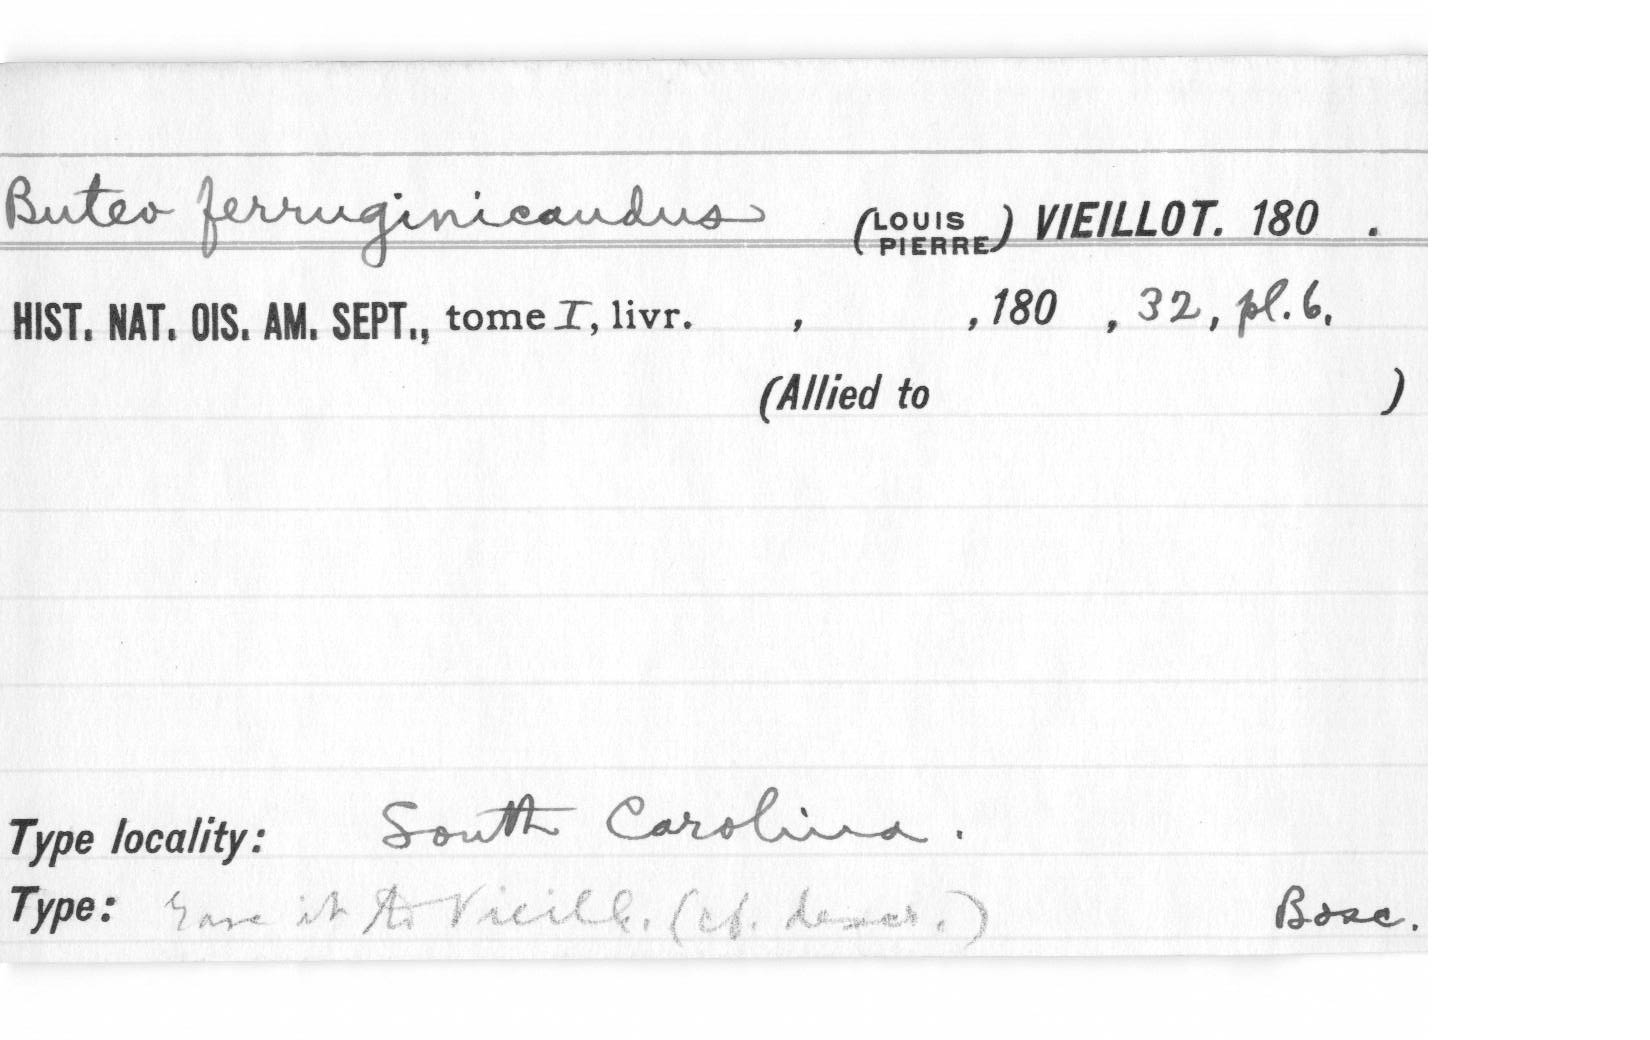 Buteo ferruginicaudus (LOUIS PIERRE) VIEILLOT. 180 .
HIST. NAT. OIS. AM. SEPT., tome I, livr. , , 180 , 32, pl. 6.
(Allied to )
Type locality: South Carolina.
Type: Gave it to Vieill. (cf. descr.) Bosc.